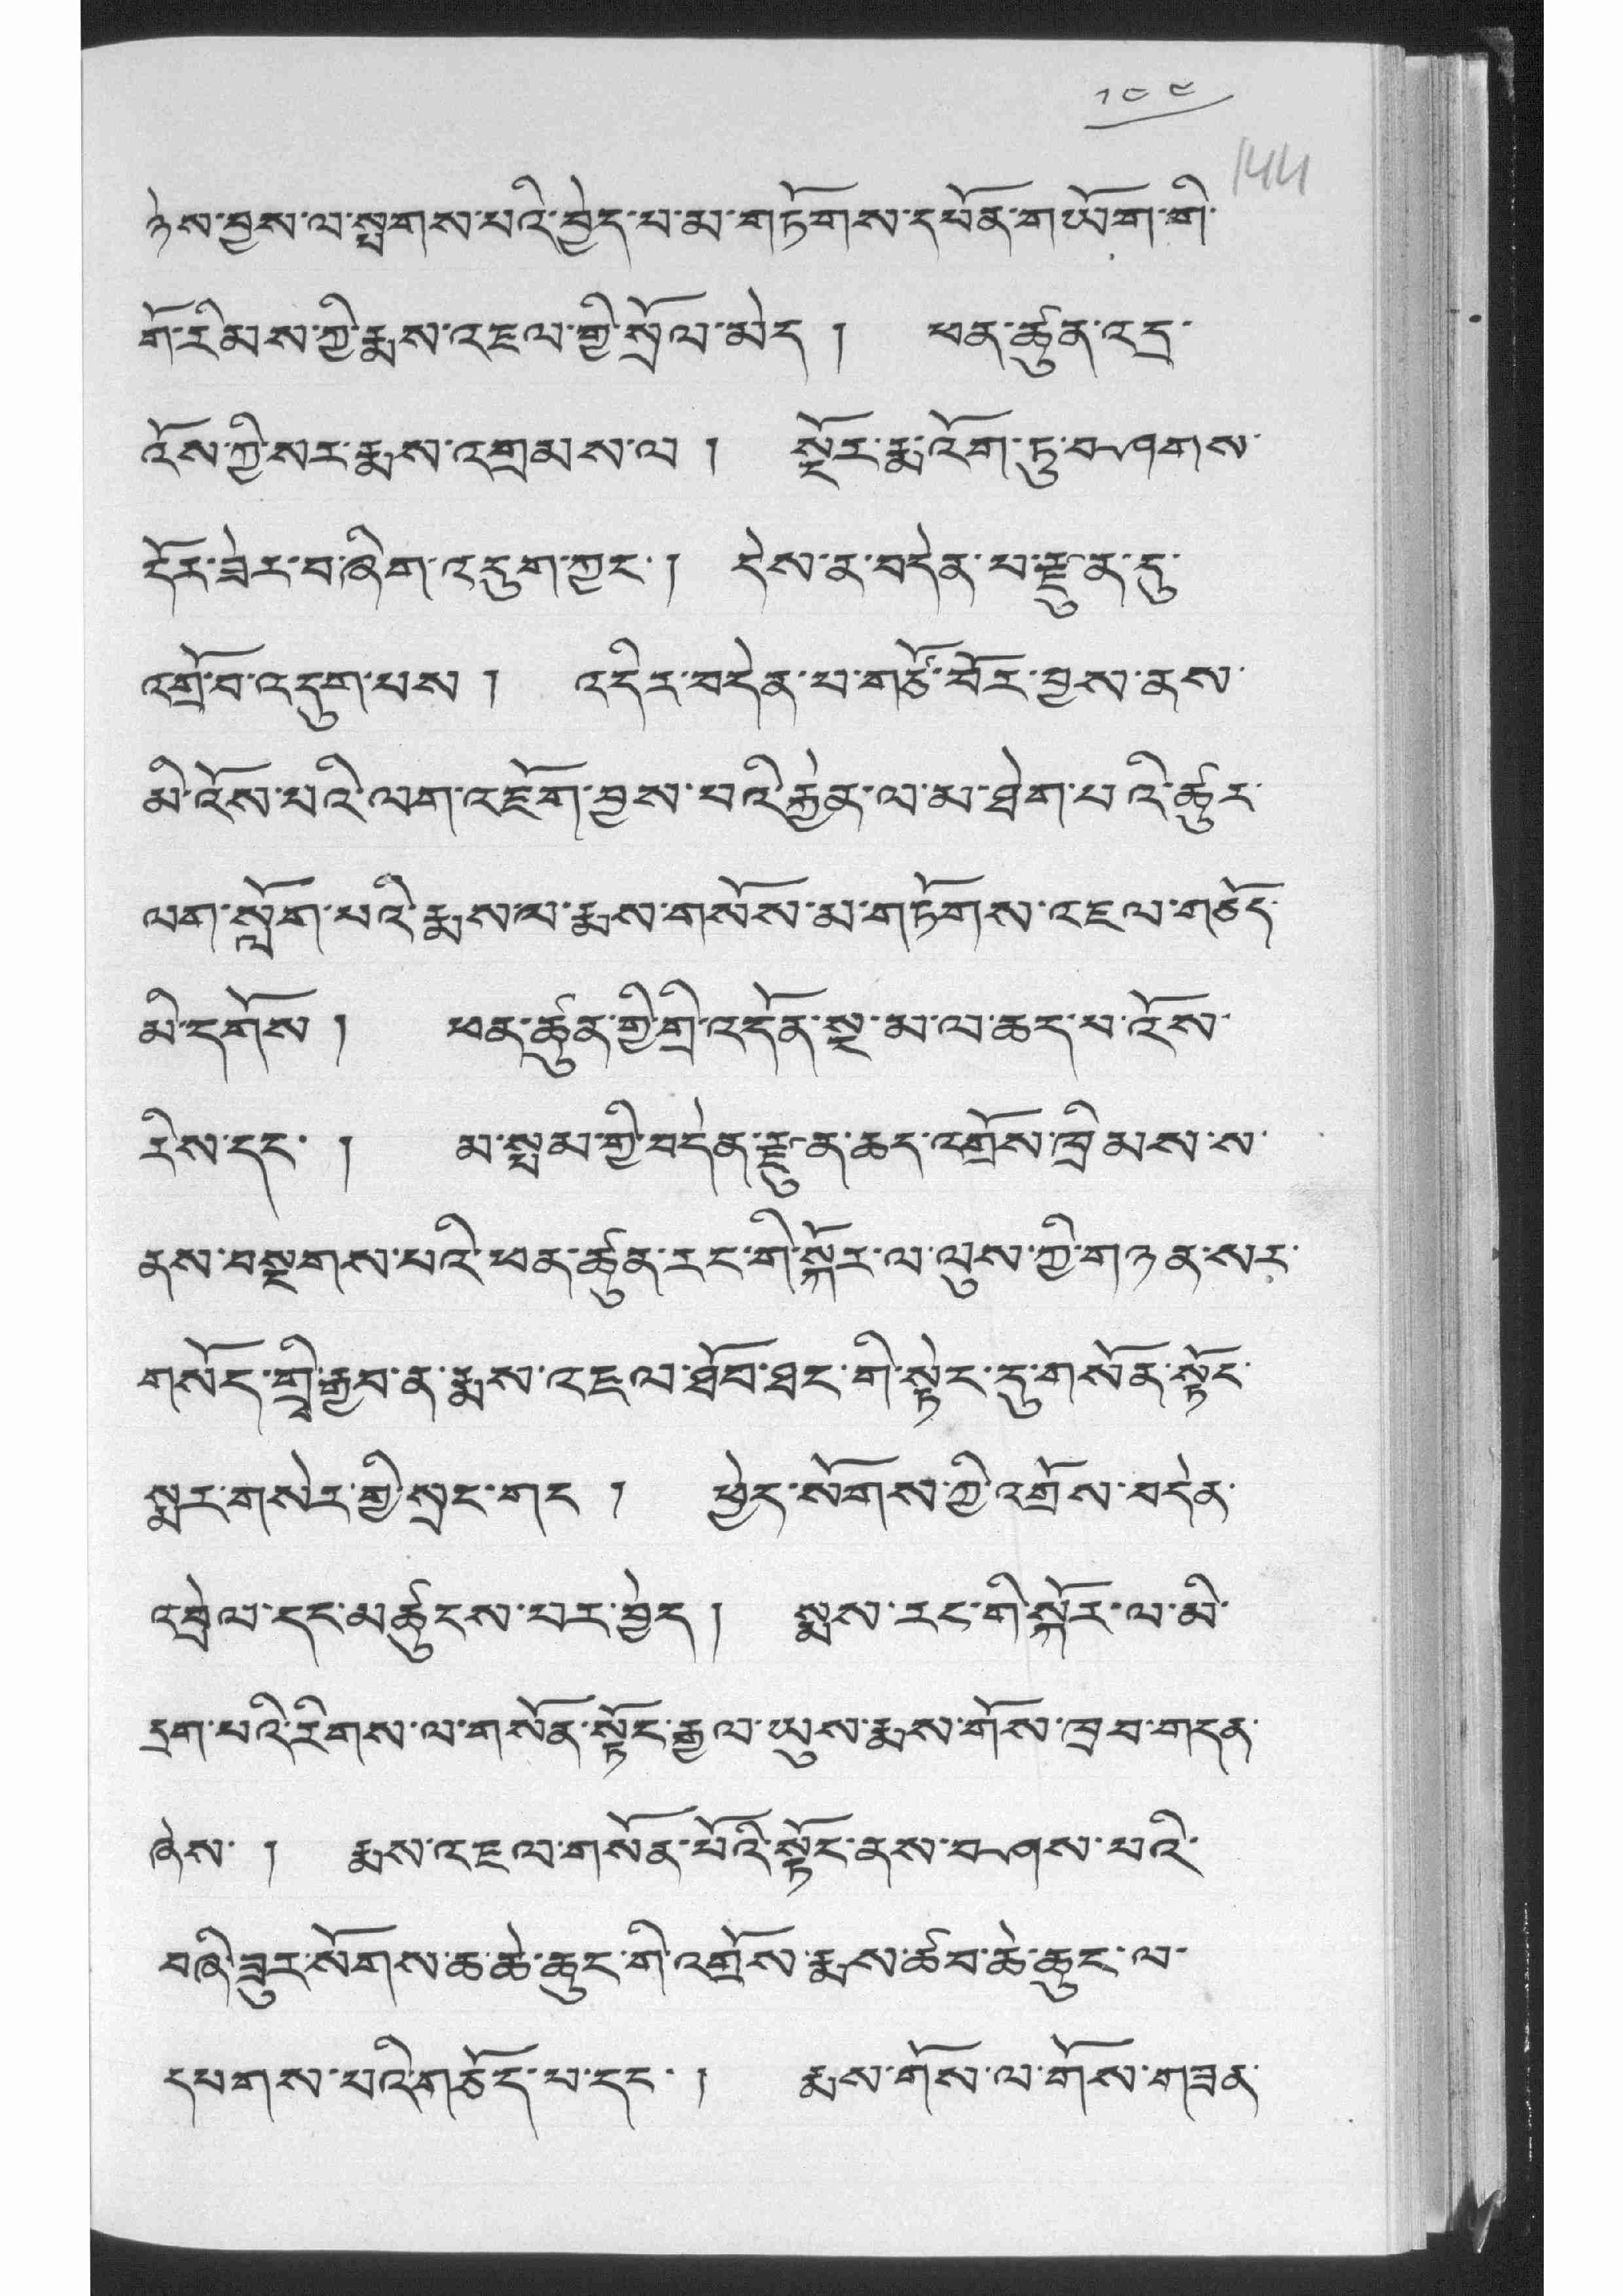 ༡༤༤
144
ཉེས་བྱས་ལ་སྤགས་པའི་བྱེད་པ་མ་གཏོགས་དཔོན་གཡོག་གི་
གོ་རིམས་ཀྱི་རྨས་འཇལ་གྱི་སྲོལ་མེད། ཕན་ཚུན་འདྲ་
འོས་ཀྱི་སར་རྨས་འགྲམས་ལ། སྔོར་རྨ་འོག་ཏུ་བཞགས་
ངོར་ཟེར་བ་ཞིག་འདུག་ཀྱང་། དེས་ན་བདེན་པ་རྫུན་དུ་
འགྲོ་བ་འདུག་པས། འདིར་བདེན་པ་གཙོ་བོར་བྱས་ནས་
མི་འོས་པའི་ལག་འཛོག་བྱས་པའི་རྐྱེན་ལ་མ་ཐེག་པའི་ཚུར་
ལག་སློག་པའི་རྨས་ལ་རྨས་གསོས་མ་གཏོགས་འཇལ་གཅོད་
མི་དགོས། ཕན་ཚུན་གྱི་གྲི་འདོན་སྔ་མ་ལ་ཆད་པ་འོས་
རིས་དང་། མ་སྤམ་གྱི་བདེན་རྫུན་ཆད་འགྲོས་ཁྲིམས་ས་
ནས་བསྔགས་པའི་ཕན་ཚུན་རང་གི་སྐོར་ལ་ལུས་ཀྱི་གཉན་སར་
གསོད་གྲི་རྒྱབ་ན་རྨས་འཇལ་ཐོབ་ཐང་གི་སྟེང་དུ་གསོན་སྟོང་
སྨར་གསེར་གྱི་སྲང་གང་། ཕྱེད་སོགས་ཀྱི་འགྲོས་བདེན་
འབྲེལ་དང་མཚུངས་པར་བྱེད། སྨས་རང་གི་སྐོར་ལ་མི་
དྲག་པའི་རིགས་ལ་གསོན་སྟོང་རྒྱལ་ཡུས་རྨས་གོས་ཁྲབ་གདན་
ཞེས། རྨས་འཇལ་གསོན་པོའི་སྟོང་ནས་བཞས་པའི་
བཞི་ཟུར་སོགས་ཆ་ཆེ་ཆུང་གི་འགྲོས་རྨས་ཚབ་ཆེ་ཆུང་ལ་
དཔགས་པའི་གཅོད་པ་དང་། རྨས་གོས་ལ་གོས་གཟན་